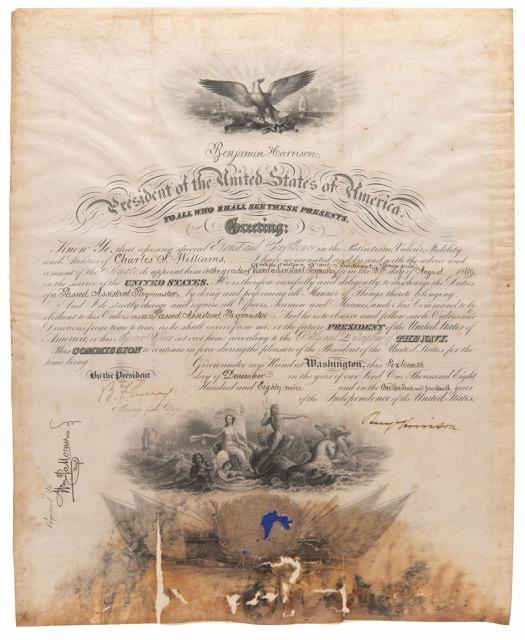 Benjamin Harrison
President of the United States of America.
TO ALL WHO SHALL SEE THESE PRESENTS,
Greeting:
Know Ye, that reposing special Trust and Confidence in the Patriotism, Valor, Fidelity
and Abilities of Charles S. Williams, I have nominated and by and with the advice and
consent of the Senate do appoint him to the grade of Passed Assistant Paymaster from the day of August 1889,
in the service of the UNITED STATES. He is therefore carefully and diligently to discharge the Duties
of a Passed Assistant Paymaster by doing and performing all Manner of Things thereto belonging.
And I do strictly charge and require all Officers, Seamen and Marines under his Command to be
obedient to his Orders as a Passed Assistant Paymaster. And he is to observe and follow such Orders and
Directions from time to time as he shall receive from me, or the future PRESIDENT of the United States of
America, or his Superior Officer set over him, according to the Rules and Discipline of THE NAVY.
This COMMISSION to continue in force during the pleasure of the President of the United States for the
time being.
Given under my Hand at Washington, this Sixteenth
By the President
day of December in the year of our Lord One Thousand Eight
B. F. Tracy
Hundred and Eighty nine and in the One hundred and fourteenth year
Secretary of the Navy.
of the Independence of the United States.
Benj Harrison
Registered